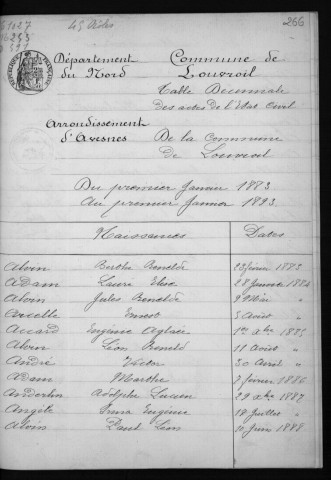 45 Actes
266
Département du Nord
Commune de Louvroil
Table Décennale
des actes de l'état civil
Arrondissement d'Avesnes
De la commune de Louvroil
Du premier Janvier 1883
Au premier Janvier 1893
Naissances Dates
Alvin Berthe Benoîte 23 février 1883
Adam Laure Elise 28 Janvier 1884
Alvin Jules 9 "
Ernest 5 Août "
Accard Eugénie Aglaée 1er Xbre 1885
Alvin Léon 11 Août "
André Victor 30 Avril "
Adam Marthe 7 février 1886
Anderlin Adolphe Lucien 29 Xbre 1887
Angèle Irma Eugénie 18 Juillet "
Alvin Paul Léon 10 Juin 1888